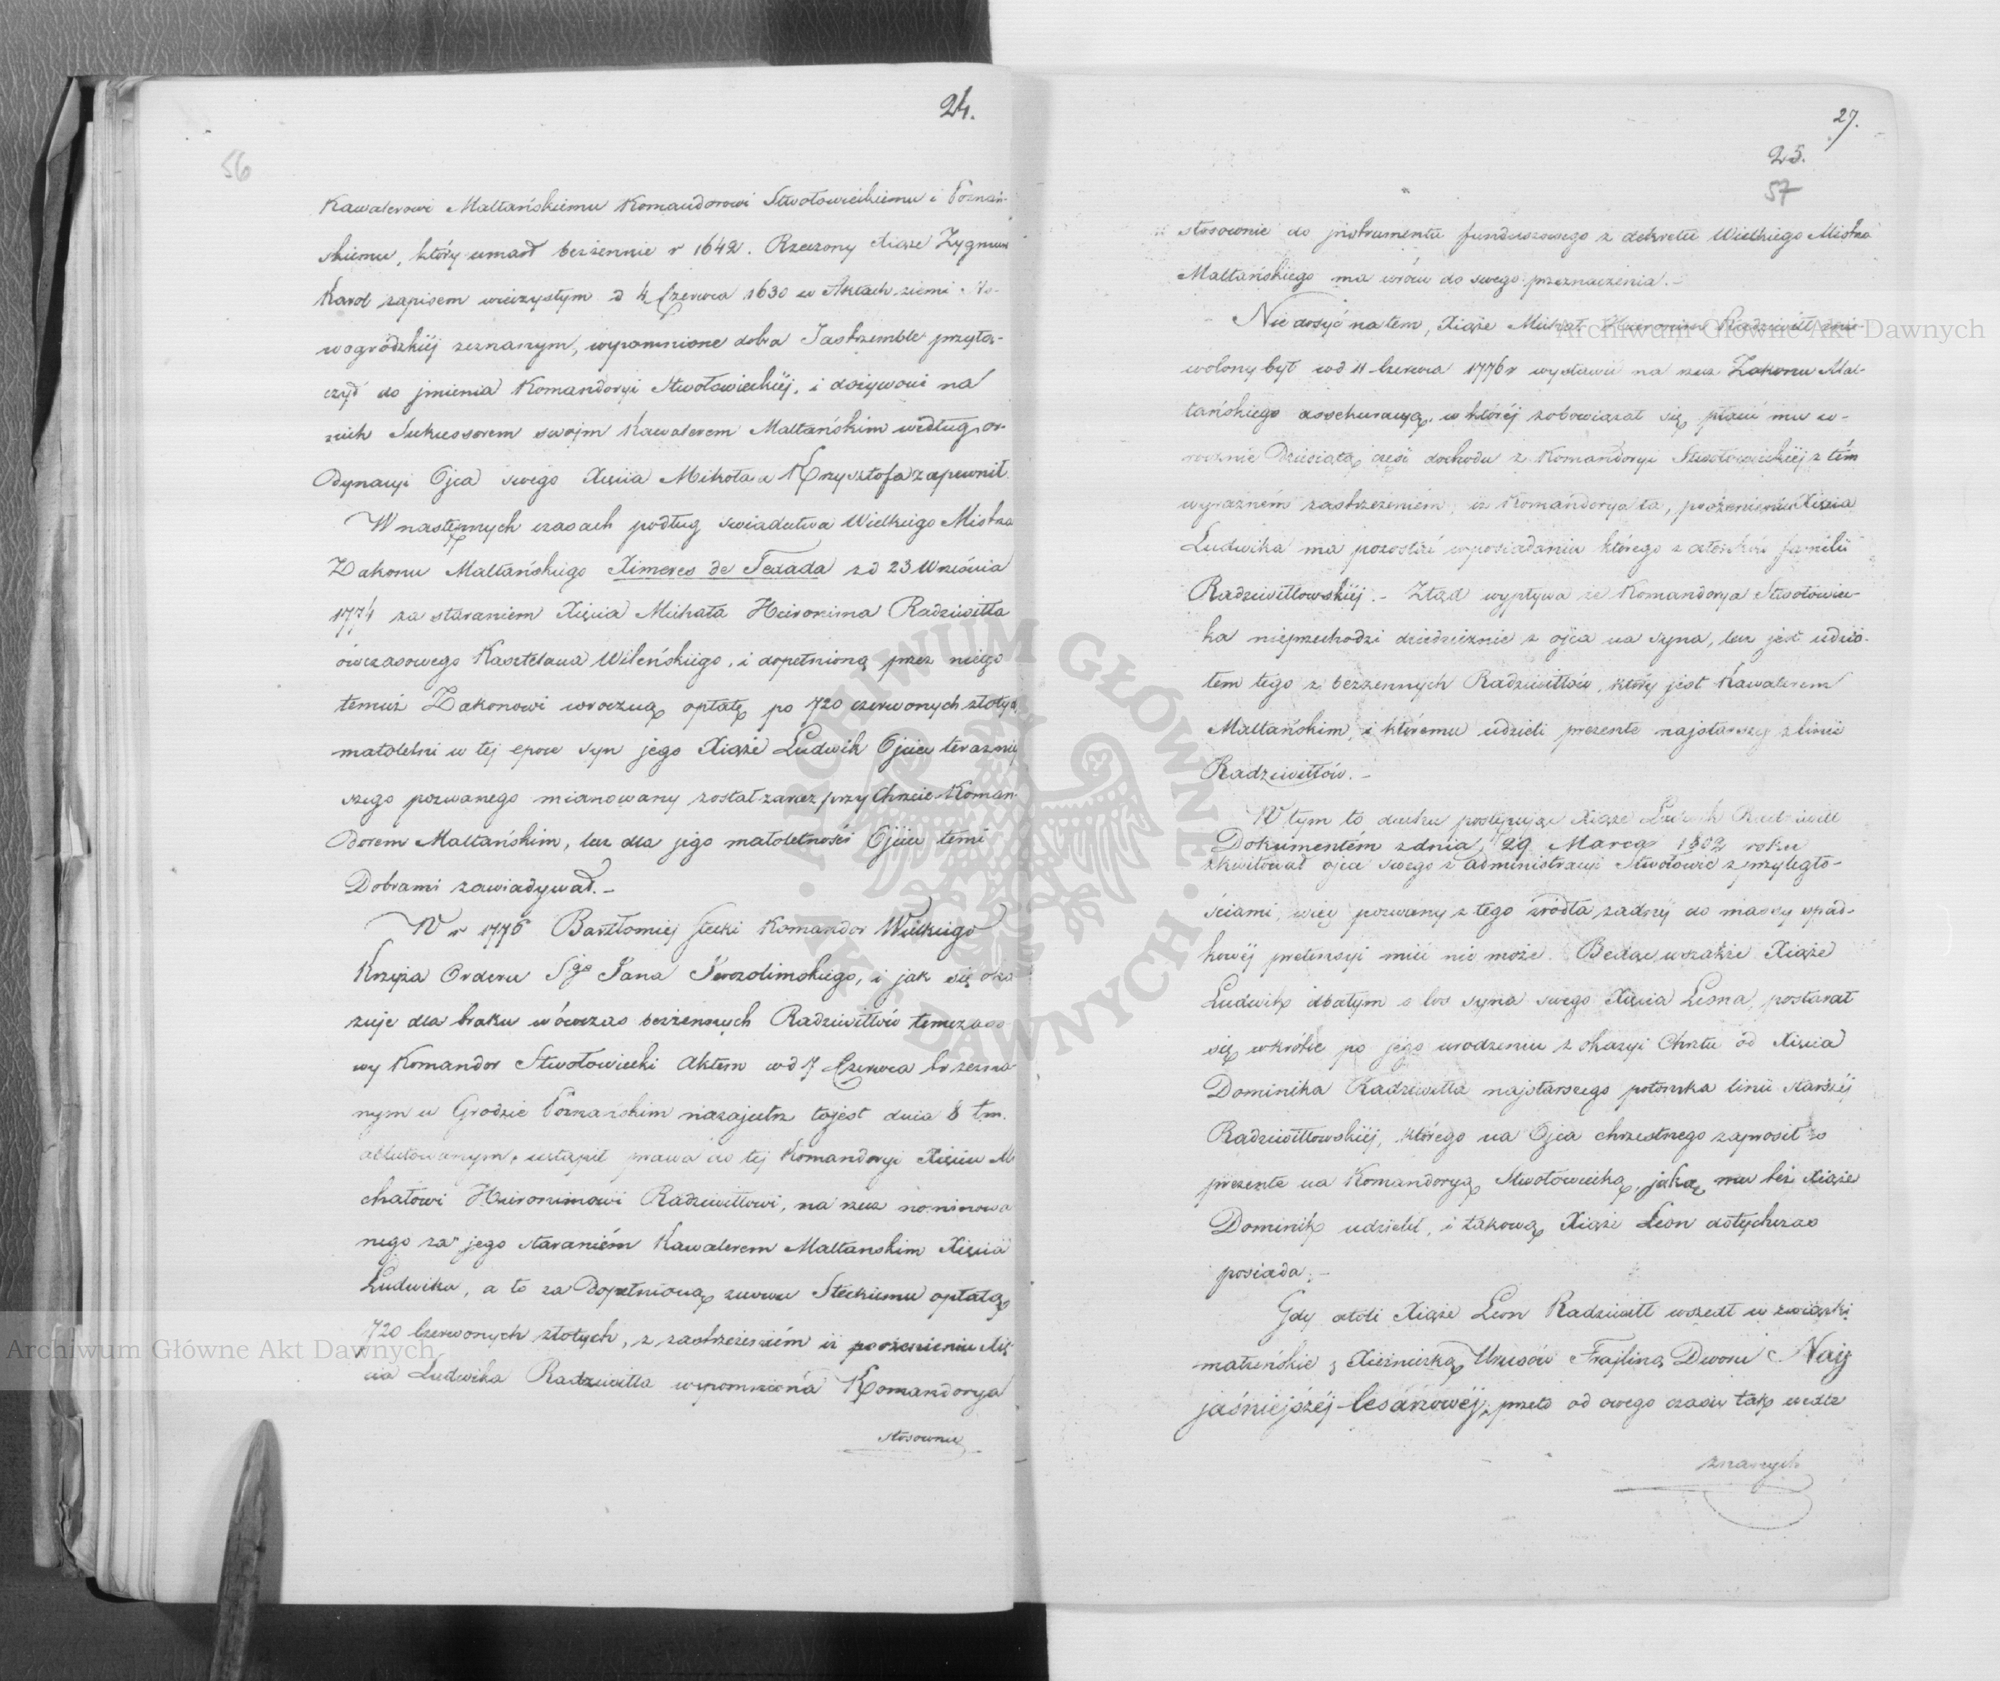 24.
56
Kawalerowi Maltańskiemu Komandorowi Stwołowickiemu i Poznań-
skiemu, który umarł bezżennie r 1642. Rzeczony Xiąże Zygmunt
Karol zapisem wieczystym d 4 Czerwca 1630 w Aktach ziemi No-
wogrodzkiej zeznanym, wspomnione dobra Jastrzemble przyłą-
czył do jmienia Komandoryi Stwołowickiéj, i dożywoci na
nich Sukcessorem swojm Kawalerem Maltańskim według or-
dynacyi Ojca swego Xięcia Mikołaja Krzysztofa zapewnił.
W następnych czasach podług swiadectwa Wielkiego Mistrza
Zakonu Maltańskiego Ximenes de Texada zd 23 Września
1774 za staraniem Xięcia Michała Hieronima Radziwiłła
ówczasowego Kasztelana Wileńskiego, i dopełnioną przez niego
temuż Zakonowi wroczną opłatę po 720 czerwonych złotych
małoletni w tej epoce syn jego Xiąże Ludwik Ojciec teraźniej
szego pozwanego mianowany został zaraz przy Chrzcie Koman-
dorem Maltańskim, lecz dla jego małoletności Ojciec temi
Dobrami zawiadywał. –
W r 1776 Bartłomiej Stecki Komandor Wielkiego
Krzyża Orderu Sgo Jana Jerozolimskiego, i jak się oka
zuje dla braku wówczas bezżennych Radziwiłłów tymczaso
wy Komandor Stwołowicki Aktem wd 7 Czerwca br zezna-
nym w Grodzie Poznańskim nazajutrz tojest dnia 8 t.m.
oblatowanym, ustąpił prawa do tej Komandoryi Xięciu Mi
chałowi Hieronimowi Radziwiłłowi, na rzecz nominowa
nego za jego staraniém Kawalerem Maltanskim Xięcia
Ludwika, a to za Dopełnioną Steckiemu opłatą
720 czerwonych złotych, z zastrzeżeniém iż po ożenieniu Xię
cia Ludwika Radziwiłła wspomniona Komandorya
stosownie
27.
25.
57
stosownie do jnstrumentu funduszowego z dekretu Wielkiego Mistrza
Maltańskiego ma wrócić do swego przeznaczenia. –
Nie dosyć na tem, Xiąże Michał Hieronim Radziwiłł znie-
wolony był wd 11 Czerwca 1776 r wystawić na rzecz Zakonu Mal-
tańskiego assekuracyą, w któréj zobowiązał się, płacić mu w-
rocznie Dziesiątą część dochodu z Komandoryi Stwołowickiéj z tém
wyraźném zastrzeżeniem, iż Komandorya ta, po ożenieniu Xięcia
Ludwika ma pozostać w posiadaniu którego z członków familii
Radziwiłłowskiéj. – Ztąd wypływa że Komandorya Stwołowic-
ka nieprzechodzi dziedzicznie z ojca na syna, lecz jest udzia-
łem tego z bezżennych Radziwiłłów, który jest Kawalerem
Maltańskim, i któremu udzieli prezente najstarszy z linii
Radziwiłłów. –
W tym to duchu postępując Xiąże Ludwik Radziwiłł
Dokumentém z dnia 29 Marca 1802 roku
zkwitował ojca swego z administracyi Stwołowic z przyległo-
ściami, więc pozwany z tego źródła żadnéj do massy spad-
kowéj pretensyi mieć nie może. Będąc wszakże Xiąże
Ludwik dbałym o los syna swego Xięcia Leona, postarał
się wkrótce po jego urodzeniu z okazyi Chrztu od Xięcia
Dominika Radziwiłła najstarszego potomka linii starszéj
Radziwiłłowskiéj, którego na Ojca chrzestnego zaprosił o
prezente na Komandoryą Stwołowicką, jaką mu też Xiąże
Dominik udzielił, i takową Xiąże Leon dotychczas
posiada. –
Gdy atoli Xiąże Leon Radziwiłł wszedł w związki
małżeńskie z Xiężniczką Urusów Frejliną Dworu Naj
jaśniejszéj Cesarzowéj, przeto od owego czasu tak wedle
znanych